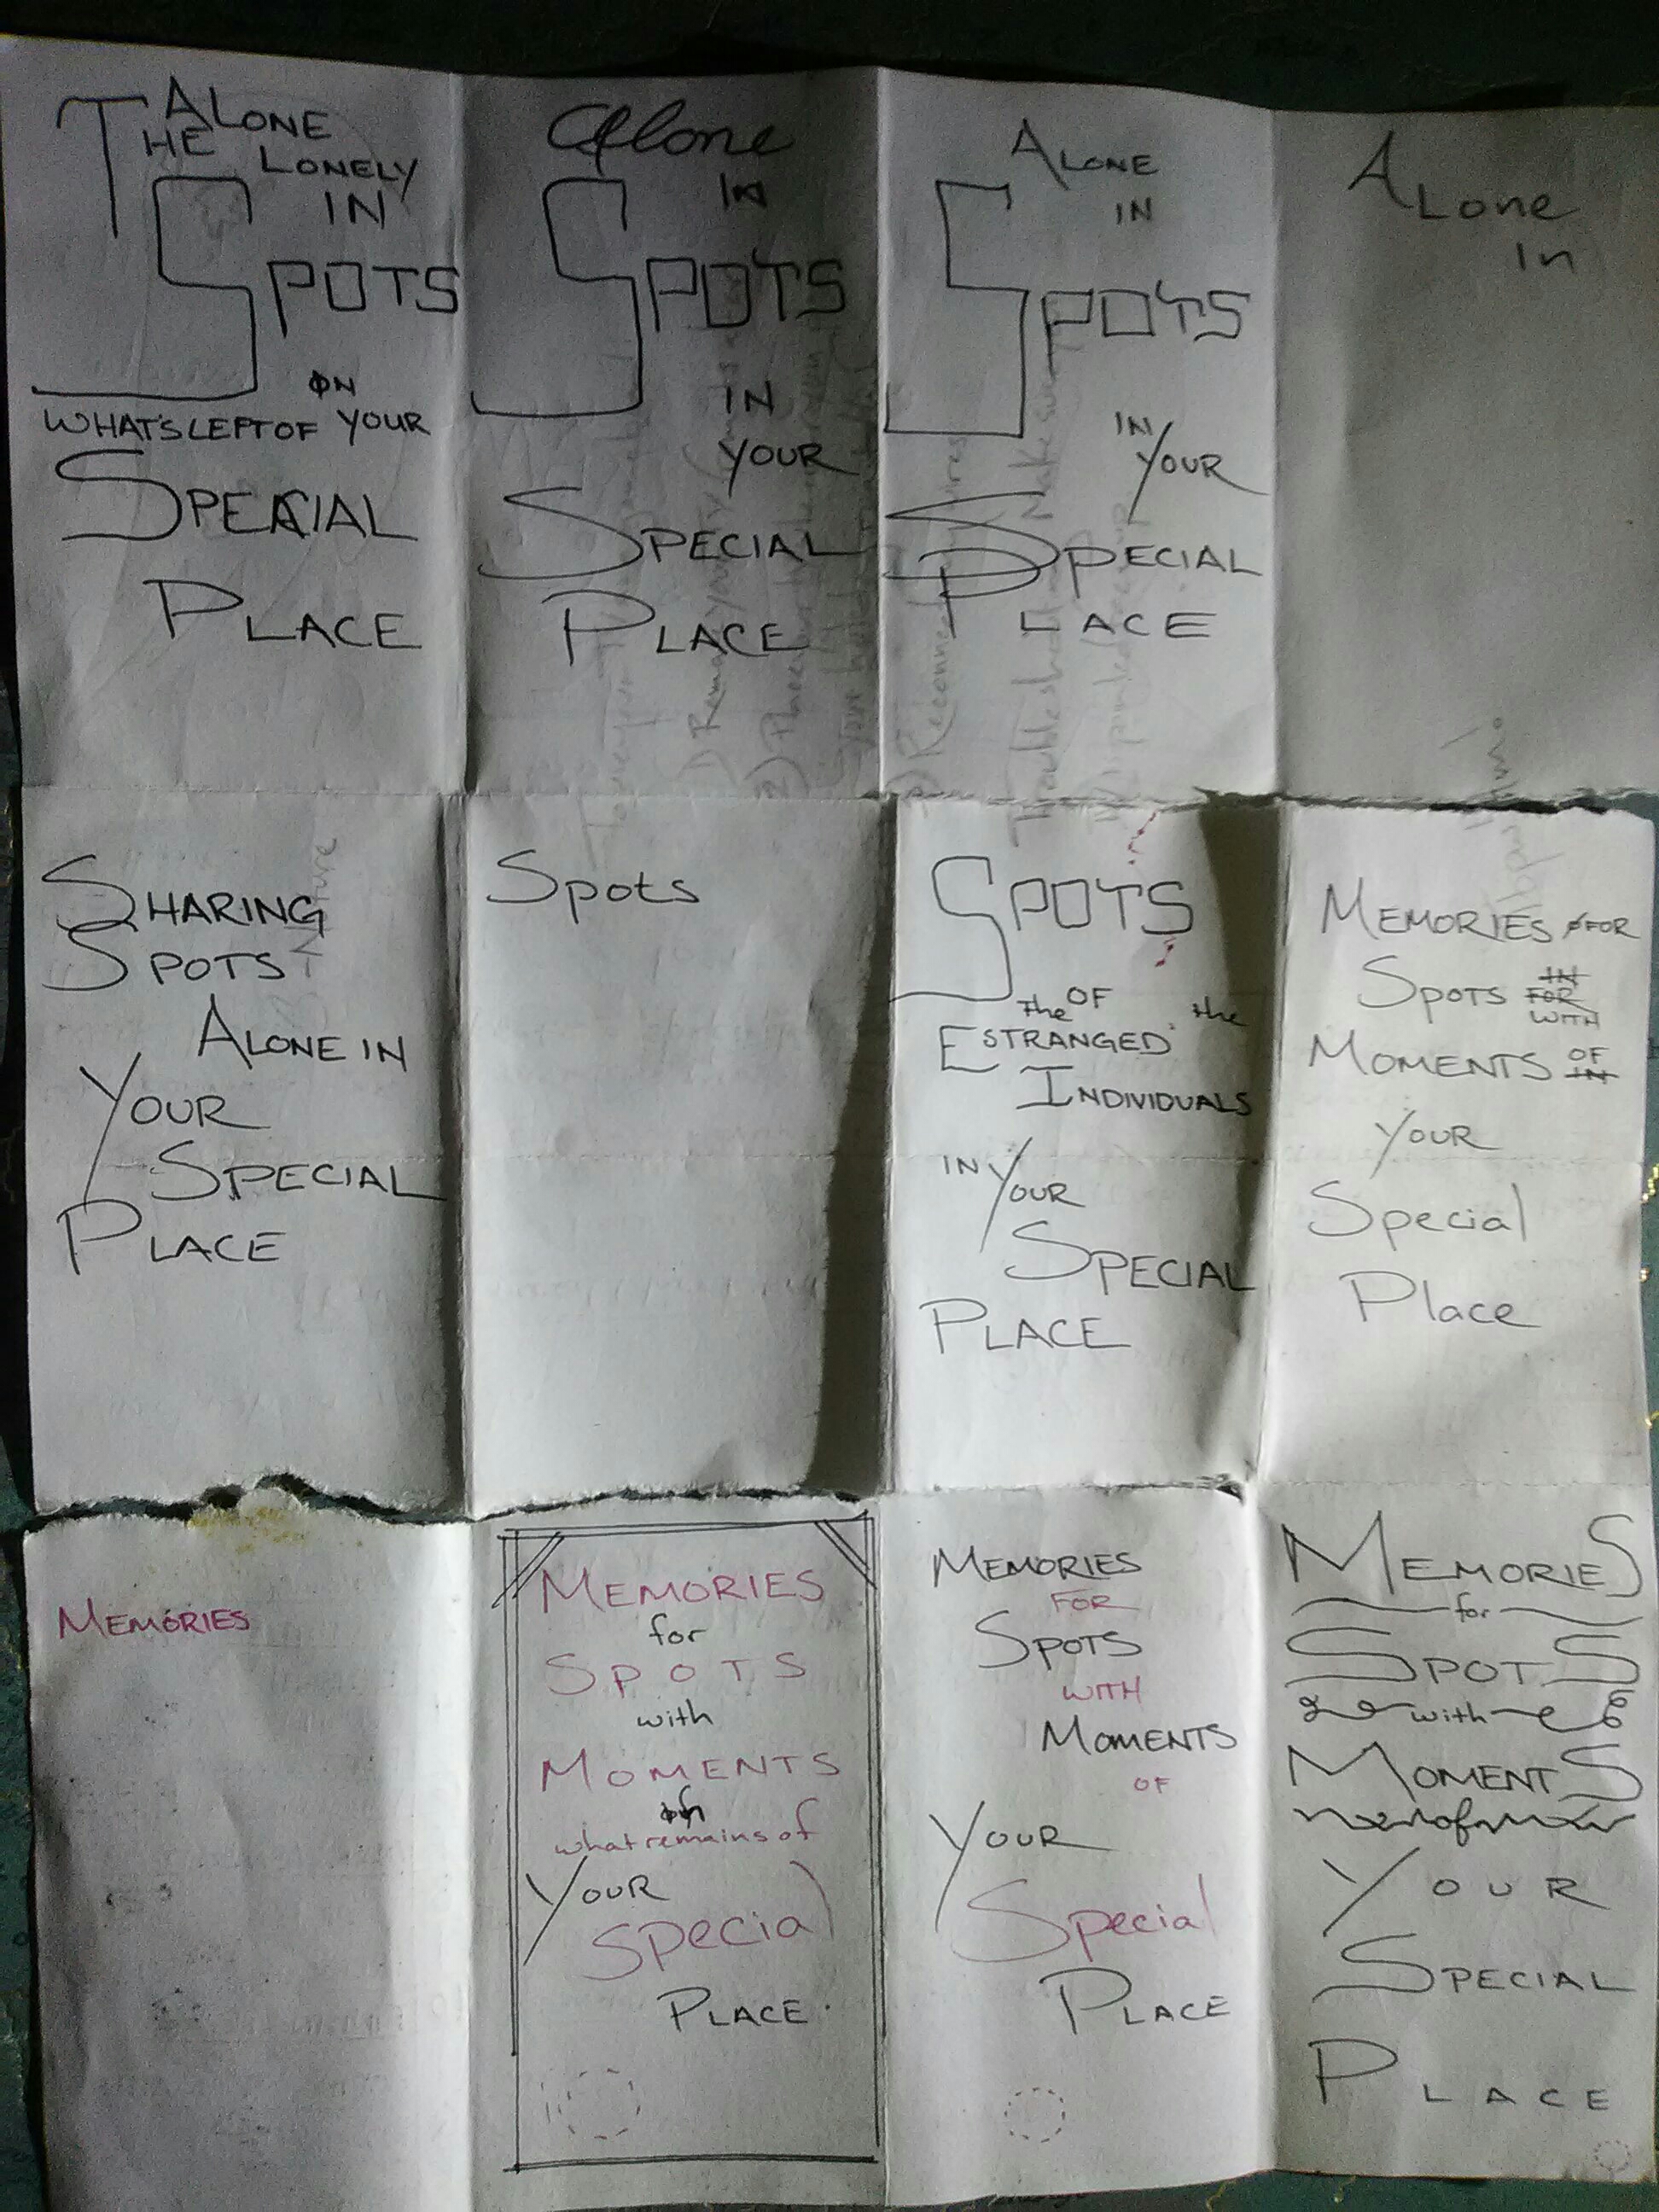 ALONE
THE LONELY
IN
SPOTS
ON
WHAT'S LEFT OF YOUR
SPECIAL
PLACE
Alone
IN
SPOTS
IN
YOUR
SPECIAL
PLACE
ALONE
IN
SPOTS
IN
YOUR
SPECIAL
PLACE
ALone
In
SHARING
SPOTS
ALONE IN
YOUR
SPECIAL
PLACE
Spots
SPOTS
the OF the
ESTRANGED
INDIVIDUALS
IN YOUR
SPECIAL
PLACE
MEMORIES FOR
SPOTS IN
FOR
WITH
MOMENTS OF
IN
YOUR
Special
Place
MEMORIES
MEMORIES
for
SPOTS
with
MOMENTS
what remains of
YOUR
special
PLACE.
MEMORIES
FOR
SPOTS
WITH
MOMENTS
OF
YOUR
Special
PLACE
MEMORIES
for
SPOTS
with
MOMENTS
of
YOUR
SPECIAL
PLACE